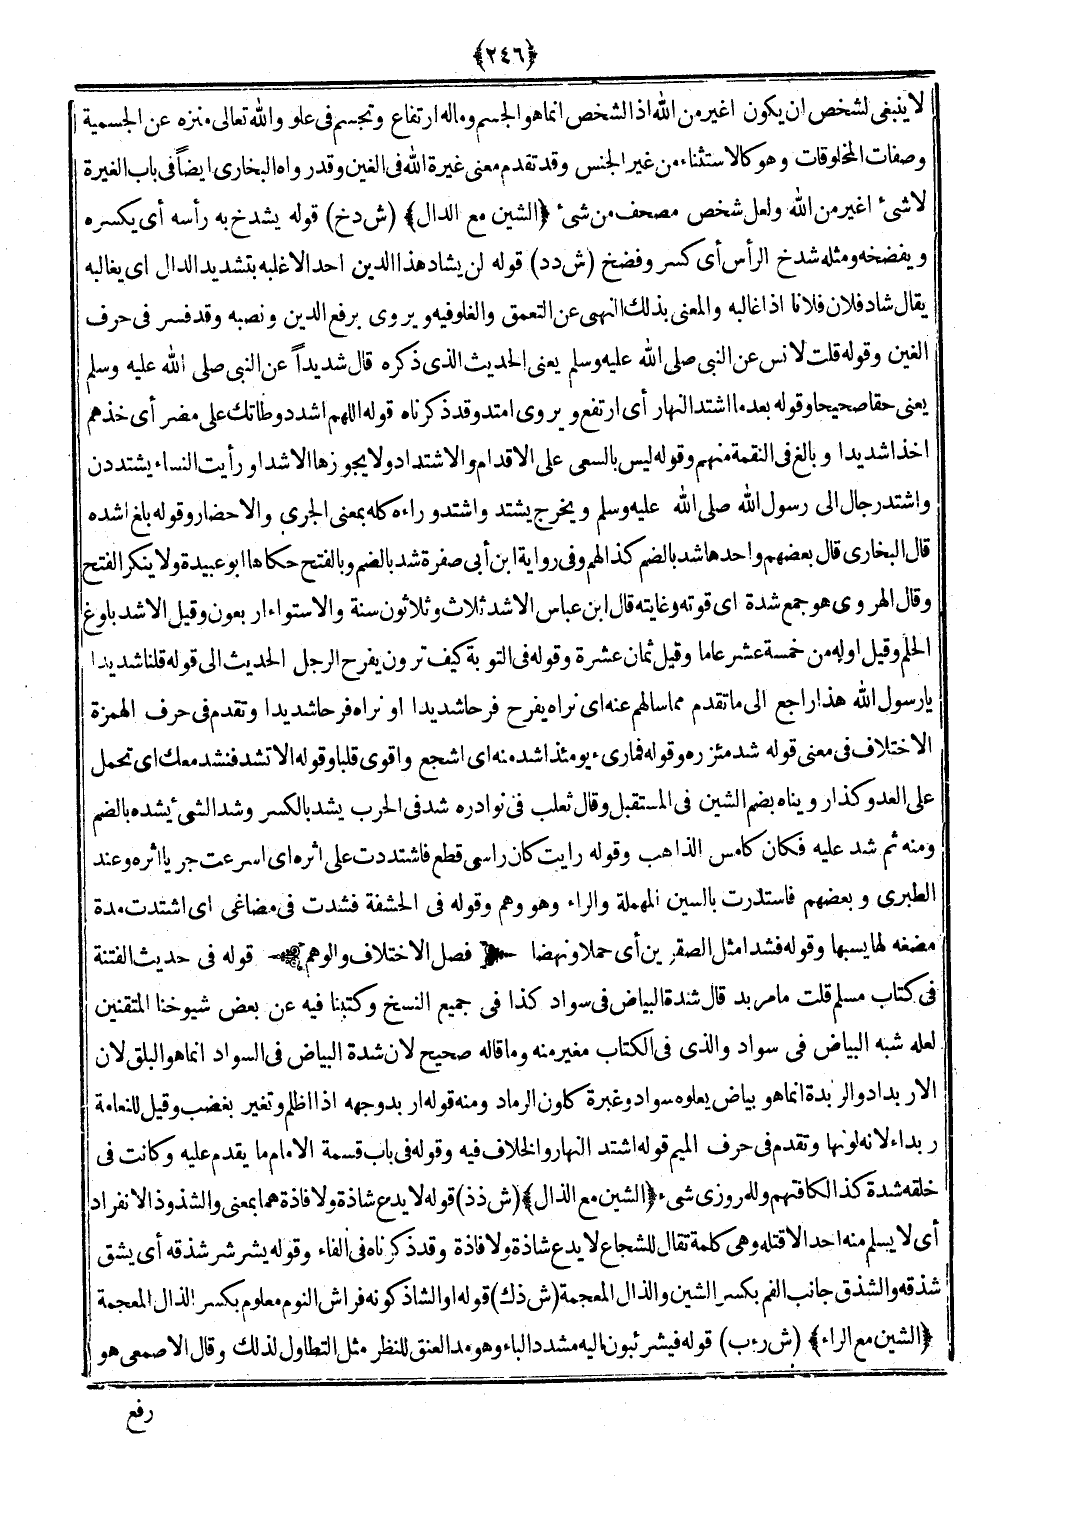 ﴿٢٤٦﴾
لا ينبغى لشخص ان يكون اغير من الله اذ الشخص انما هو الجسم وماله ارتفاع وتجسم فى علو والله تعالى منزه عن الجسمية
وصفات المخلوقات وهو كالاستثناء من غير الجنس وقد تقدم معنى غيرة الله فى الغين وقد رواه البخارى ايضاً فى باب الغيرة
لا شىء اغير من الله ولعل شخص مصحف من شىء ﴿الشين مع الدال﴾ (ش دخ) قوله يشدخ به رأسه أى يكسره
ويفضخه ومثله شدخ الرأس أى كسر وفضخ (ش دد) قوله لن يشاد هذا الدين احد الا غلبه بتشديد الدال اى يغالبه
يقال شاد فلان فلانا اذا غالبه والمعنى بذلك النهى عن التعمق والغلو فيه ويروى برفع الدين ونصبه وقد فسر فى حرف
الغين وقوله قلت لانس عن النبى صلى الله عليه وسلم يعنى الحديث الذى ذكره قال شديداً عن النبى صلى الله عليه وسلم
يعنى حقا صحيحا وقوله بعد ما اشتد النهار أى ارتفع ويروى امتد وقد ذكرناه قوله اللهم اشدد وطاتك على مضر أى خذهم
اخذا شديدا وبالغ فى النقمة منهم وقوله ليس بالسعى على الاقدام والاشتداد ولا يجوزها الا شدا ورأيت النساء يشتددن
واشتد رجال الى رسول الله صلى الله عليه وسلم ويخرج يشتد واشتدوراءه كله بمعنى الجرى والاحضار وقوله بلغ اشده
قال البخارى قال بعضهم واحدها شد بالضم كذا لهم وفى رواية ابن أبى صفرة شد بالضم وبالفتح حكاها ابو عبيدة ولا ينكر الفتح
وقال الهروى هو جمع شدة اى قوته وغايته قال ابن عباس الاشد ثلاث وثلاثون سنة والاستواء اربعون وقيل الاشد بلوغ
الحلم وقيل اوله من خمسة عشر عاما وقيل ثمان عشرة وقوله فى التوبة كيف ترون يفرح الرجل الحديث الى قوله قلنا شديدا
يا رسول الله هذا راجع الى ما تقدم مما سالهم عنه اى نراه يفرح فرحا شديدا او نراه فرحا شديدا وتقدم فى حرف الهمزة
الاختلاف فى معنى قوله شد مئزره وقوله فما رىء يومئذ اشد منه اى اشجع واقوى قلبا وقوله الا تشد فنشد معك اى تحمل
على العدو كذا رويناه بضم الشين فى المستقبل وقال ثعلب فى نوادره شد فى الحرب يشد بالكسر وشد الشىء يشده بالضم
ومنه ثم شد عليه فكان كامس الذاهب وقوله رايت كان راسى قطع فاشتددت على اثره اى اسرعت جريا اثره وعند
الطبرى وبعضهم فاستدرت بالسين المهملة والراء وهو وهم وقوله فى الحشفة فشدت فى مضاغى اى اشتدت مدة
مضغه لها يسبها وقوله فشدا مثل الصقرين أى حملا ونهضا فصل الاختلاف والوهم قوله فى حديث الفتنة
فى كتاب مسلم قلت ما مربد قال شدة البياض فى سواد كذا فى جميع النسخ وكتبنا فيه عن بعض شيوخنا المتقنين
لعله شبه البياض فى سواد والذى فى الكتاب مغير منه وما قاله صحيح لان شدة البياض فى السواد انما هو البلق لان
الاربداد والربدة انما هو بياض يعلوه سواد وغبرة كلون الرماد ومنه قوله اربد وجهه اذا اظلم وتغير بغضب وقيل للنعامة
ربداء لانه لونها وتقدم فى حرف الميم قوله اشتد النهار والخلاف فيه وقوله فى باب قسمة الامام ما يقدم عليه وكانت فى
خلقه شدة كذا لكافتهم وللمروزى شىء ﴿الشين مع الذال﴾ (ش ذذ) قوله لا يدع شاذة ولا فاذة هما بمعنى والشذوذ الانفراد
أى لا يسلم منه احد الا قتله وهى كلمة تقال للشجاع لا يدع شاذة ولا فاذة وقد ذكرناه فى الفاء وقوله يشرشر شذقه أى يشق
شذقه والشذق جانب الفم بكسر الشين والذال المعجمة (ش ذك) قوله او الشاذكونه فراش النوم معلوم بكسر الذال المعجمة
﴿الشين مع الراء﴾ (ش رءب) قوله فيشرئبون اليه مشدد الباء وهو مد العنق للنظر مثل التطاول لذلك وقال الاصمعى هو
رفع